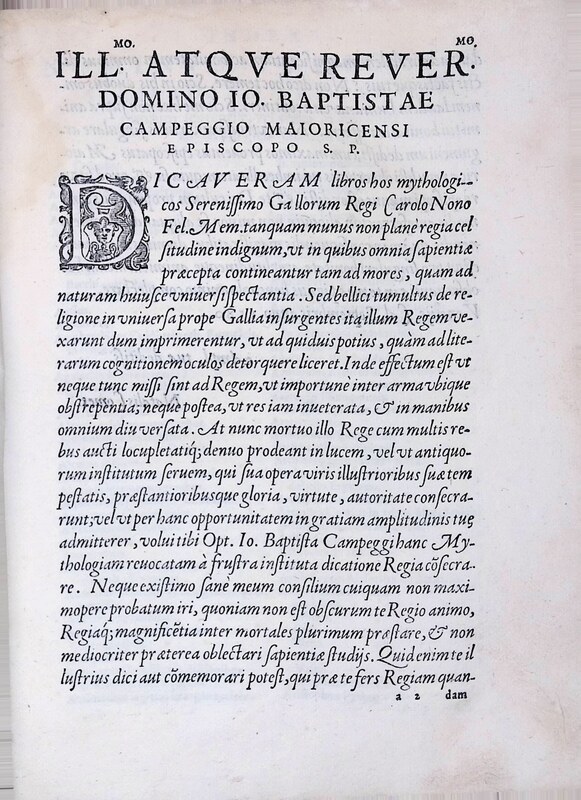 MO. MO.
ILL. ATQVE REVER.
DOMINO IO. BAPTISTAE
CAMPEGGIO MAIORICENSI
EPISCOPO S. P.
DICAVERAM libros hos mythologi-
cos Serenissimo Gallorum Regi Carolo Nono
Fel. Mem. tanquam munus non planè regia cel
situdine indignum, vt in quibus omnia sapientiæ
præcepta contineantur tam ad mores, quam ad
naturam huiusce vniuersi spectantia. Sed bellici tumultus de re-
ligione in vniuersa prope Gallia insurgentes ita illum Regem ve-
xarunt dum imprimerentur, vt ad quiduis potius, quàm ad lite-
rarum cognitionem oculos detorquere liceret. Inde effectum est vt
neque tunc missi sint ad Regem, vt importunè inter arma vbique
obstrepentia; neque postea, vt res iam inueterata, & in manibus
omnium diu versata. At nunc mortuo illo Rege cum multis re-
bus aucti locupletatiq; denuo prodeant in lucem, vel vt antiquo-
rum institutum seruem, qui sua opera viris illustrioribus suæ tem
pestatis, præstantioribusque gloria, virtute, autoritate consecra-
runt; vel vt per hanc opportunitatem in gratiam amplitudinis tuę
admitterer, volui tibi Opt. Io. Baptista Campeggi hanc My-
thologiam reuocatam à frustra instituta dicatione Regia cōsecra-
re. Neque existimo sanè meum consilium cuiquam non maxi-
mopere probatum iri, quoniam non est obscurum te Regio animo,
Regiaq; magnificētia inter mortales plurimum præstare, & non
mediocriter præterea oblectari sapientiæ studijs. Quid enim te il
lustrius dici aut cōmemorari potest, qui præ te fers Regiam quan-
a 2 dam